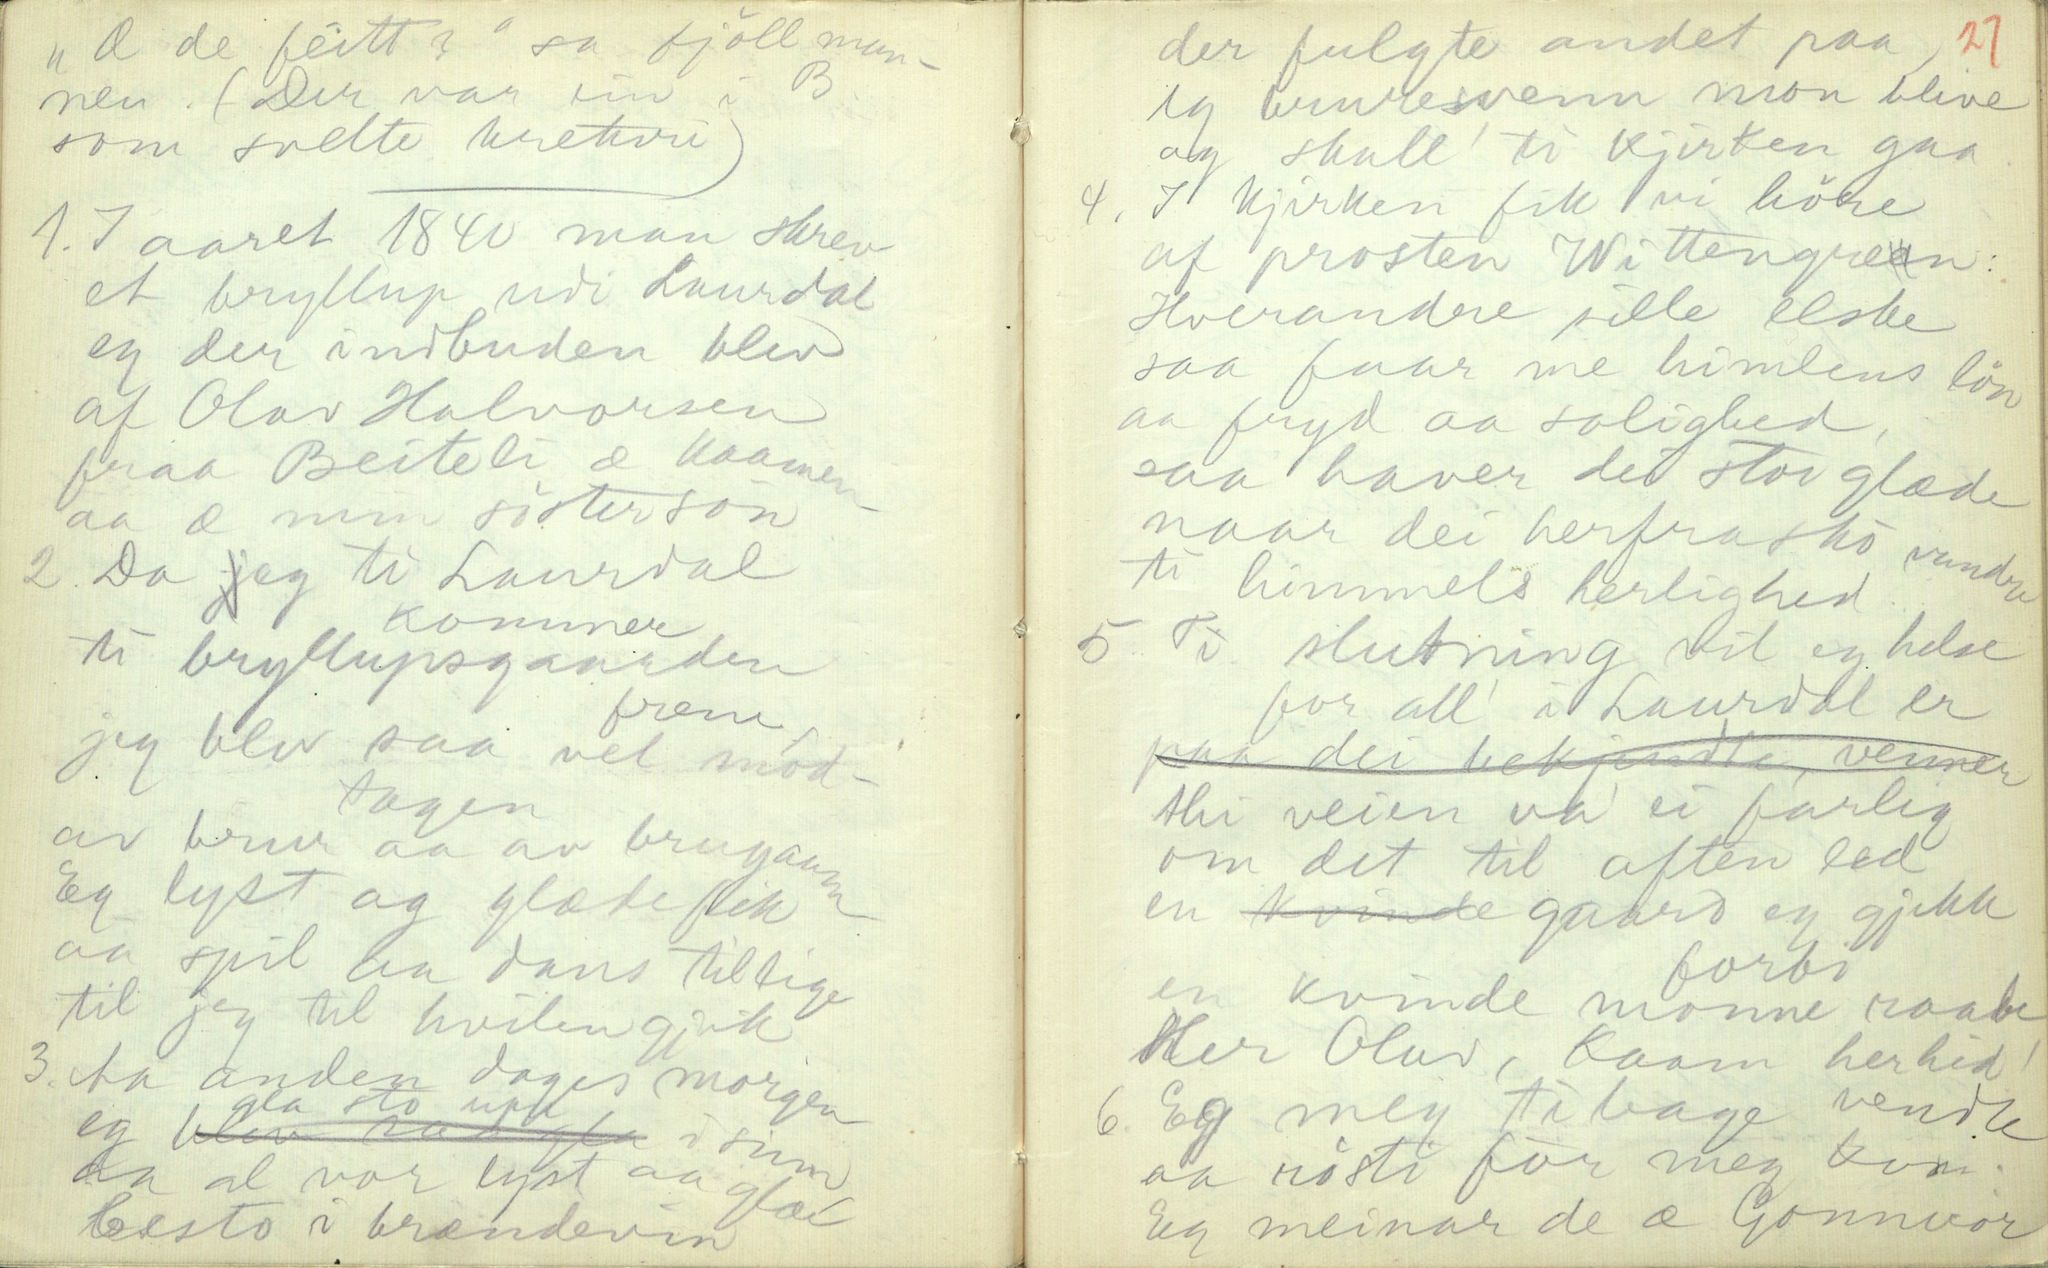 „Æ de feitt?" sa fjöllman-
nen. (Der var ein i B.
som svelte kretturi)
1. I aaret 1840 man skrev
et bryllup udi Laurdal
eg der indbuden blev
af Olav Halvorsen
fraa Beiteli æ kaamen
aa æ min söstersön
2. Da jeg ti Laurdal
kommer
ti bryllupsgaarden
frem,
jeg blev saa vel mod-
tagen
av brur aa av brugaam
Eg lyst og glæde fik
aa spil aa dans tillige
til jeg til hvilen gjik
3. Aa anden dages morgen
gla sto upp
eg blev i sinn
aa al vor lyst aa glæ
besto i brændevin
27
der fulgte andet paa
eg bruresvenn mon blive
og skull' ti kjirken gaa.
4. I kjirken fik vi höre
af prosten Wittengreen:
Hverandre sille elske
saa faar me himlens lön
aa fryd aa salighed,
saa haver dei stor glæde
naar dei herfra sko vandra
ti himmels herlighed.
5. Ti slutning vil eg helse
for all' i Laurdal er
paa dei bekjendte, venner
thi veien va' ei farlig
om det til aften led
en kvinde gaard eg gjekk
forbi
en kvinde monne raabe
Her Olav, kaam herhid!
6. Eg meg tibage vendte
aa rösti för meg kom.
Eg meinar de æ Gonnvor